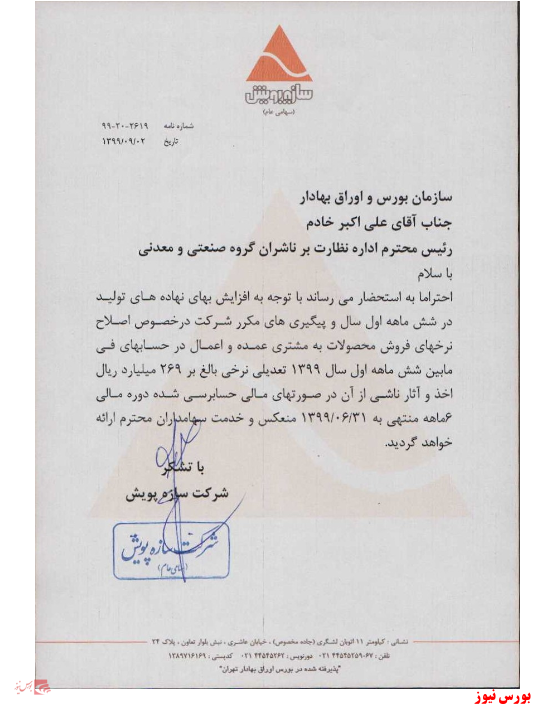 سازه پویش
(سهامی عام)
شماره نامه ۹۹-۲۰-۲۶۱۹
تاریخ ۱۳۹۹/۰۹/۰۲
سازمان بورس و اوراق بهادار
جناب آقای علی اکبر خادم
رئیس محترم اداره نظارت بر ناشران گروه صنعتی و معدنی
با سلام
احتراما به استحضار می رساند با توجه به افزایش بهای نهاده های تولید
در شش ماهه اول سال و پیگیری های مکرر شرکت درخصوص اصلاح
نرخهای فروش محصولات به مشتری عمده و اعمال در حسابهای فی
مابین شش ماهه اول سال ۱۳۹۹ تعدیلی نرخی بالغ بر ۲۶۹ میلیارد ریال
اخذ و آثار ناشی از آن در صورتهای مالی حسابرسی شده دوره مالی
۶ماهه منتهی به ۱۳۹۹/۰۶/۳۱ منعکس و خدمت سهامداران محترم ارائه
خواهد گردید.
با تشکر
شرکت سازه پویش
شرکت سازه پویش
(سهامی عام)
نشانی : کیلومتر ۱۱ اتوبان لشگری (جاده مخصوص) ، خیابان عاشری ، نبش بلوار تعاون ، پلاک ۲۴
تلفن : ۶۷-۴۴۵۴۵۲۵۹ ۰۲۱ دورنویس : ۴۴۵۴۵۲۶۲ ۰۲۱ کدپستی : ۱۳۸۹۷۱۶۱۶۹
"پذیرفته شده در بورس اوراق بهادار تهران"
بورس نیوز
بورس نیوز